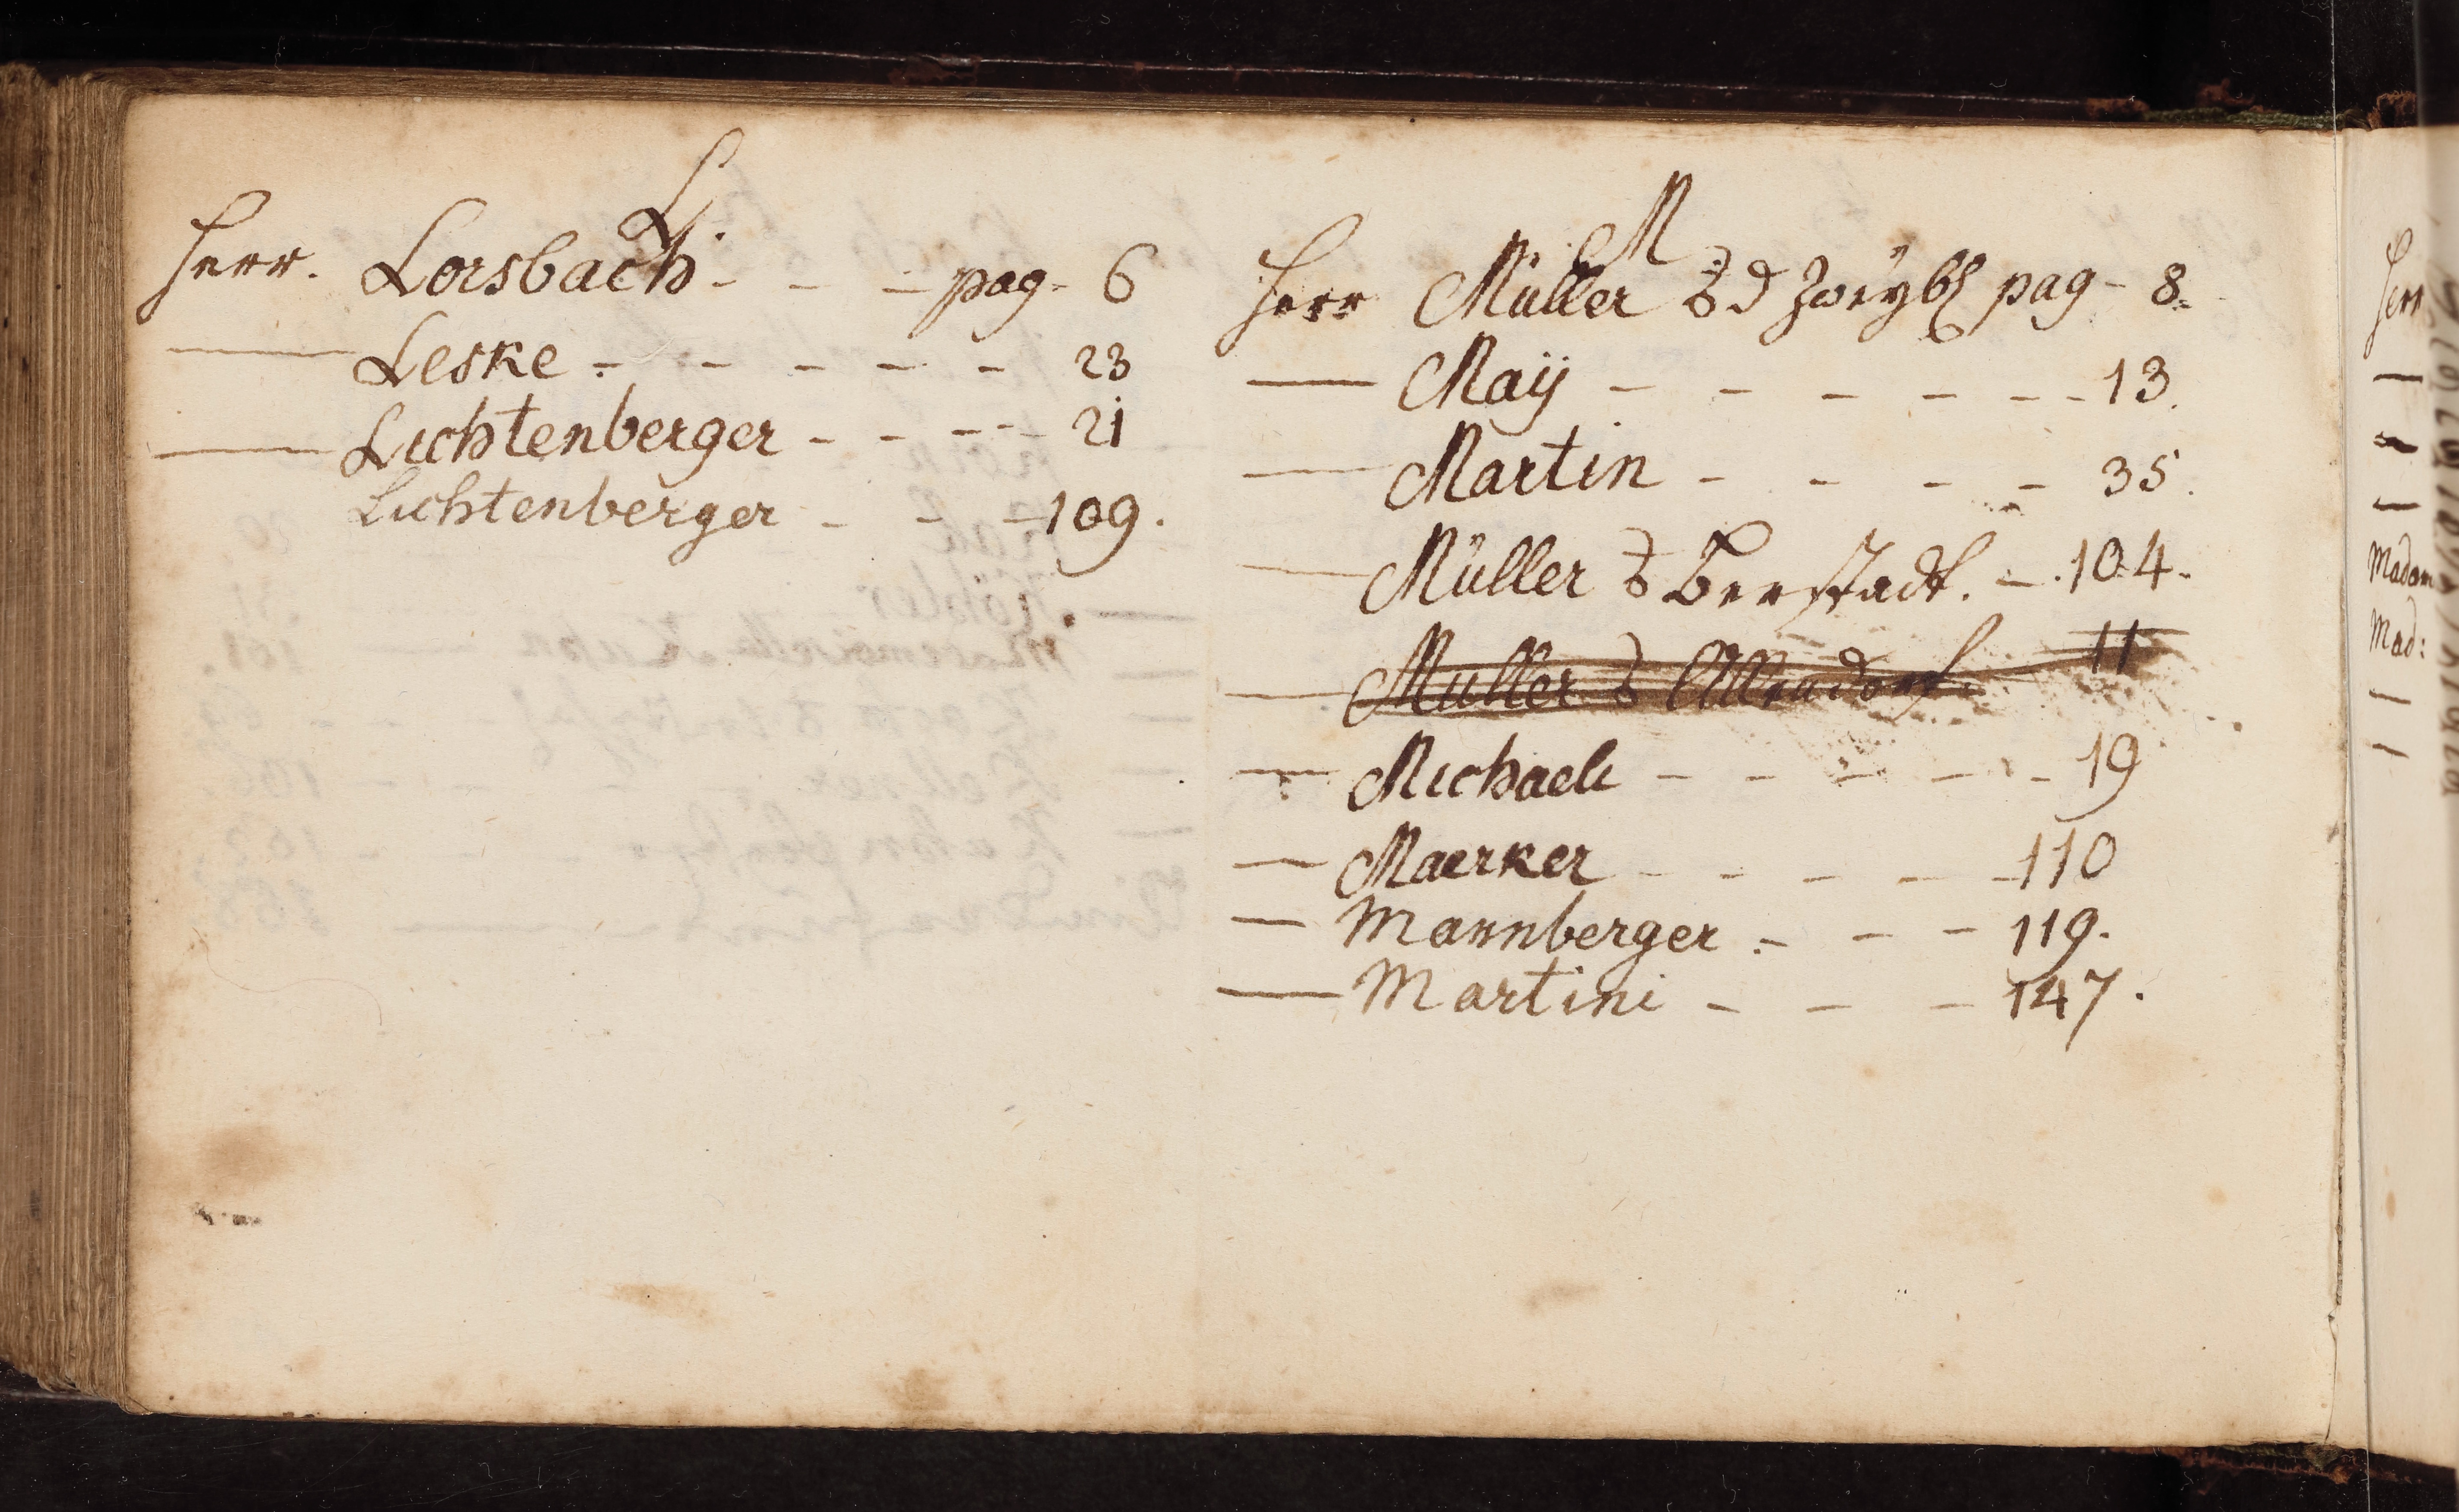 L
Herr. Lorsbach - - - pag - 6
— Leske - - - - - 23
— Lichtenberger - - - - - 21
Lichtenberger - - - 109.
M
Herr Müller d Zweybr pag - 8.
— Maÿ - - - - - - - 13.
— Martin - - - - 35.
— Müller Berstadt. - 104.
— Müller Allendorf - 11
— Michaeli - - - - - 19
— Maerker - - - - - 110
— Mannberger - - - 119.
— Martini - - - 147.
Herr
—
—
—
Madam
Mad:
—
—